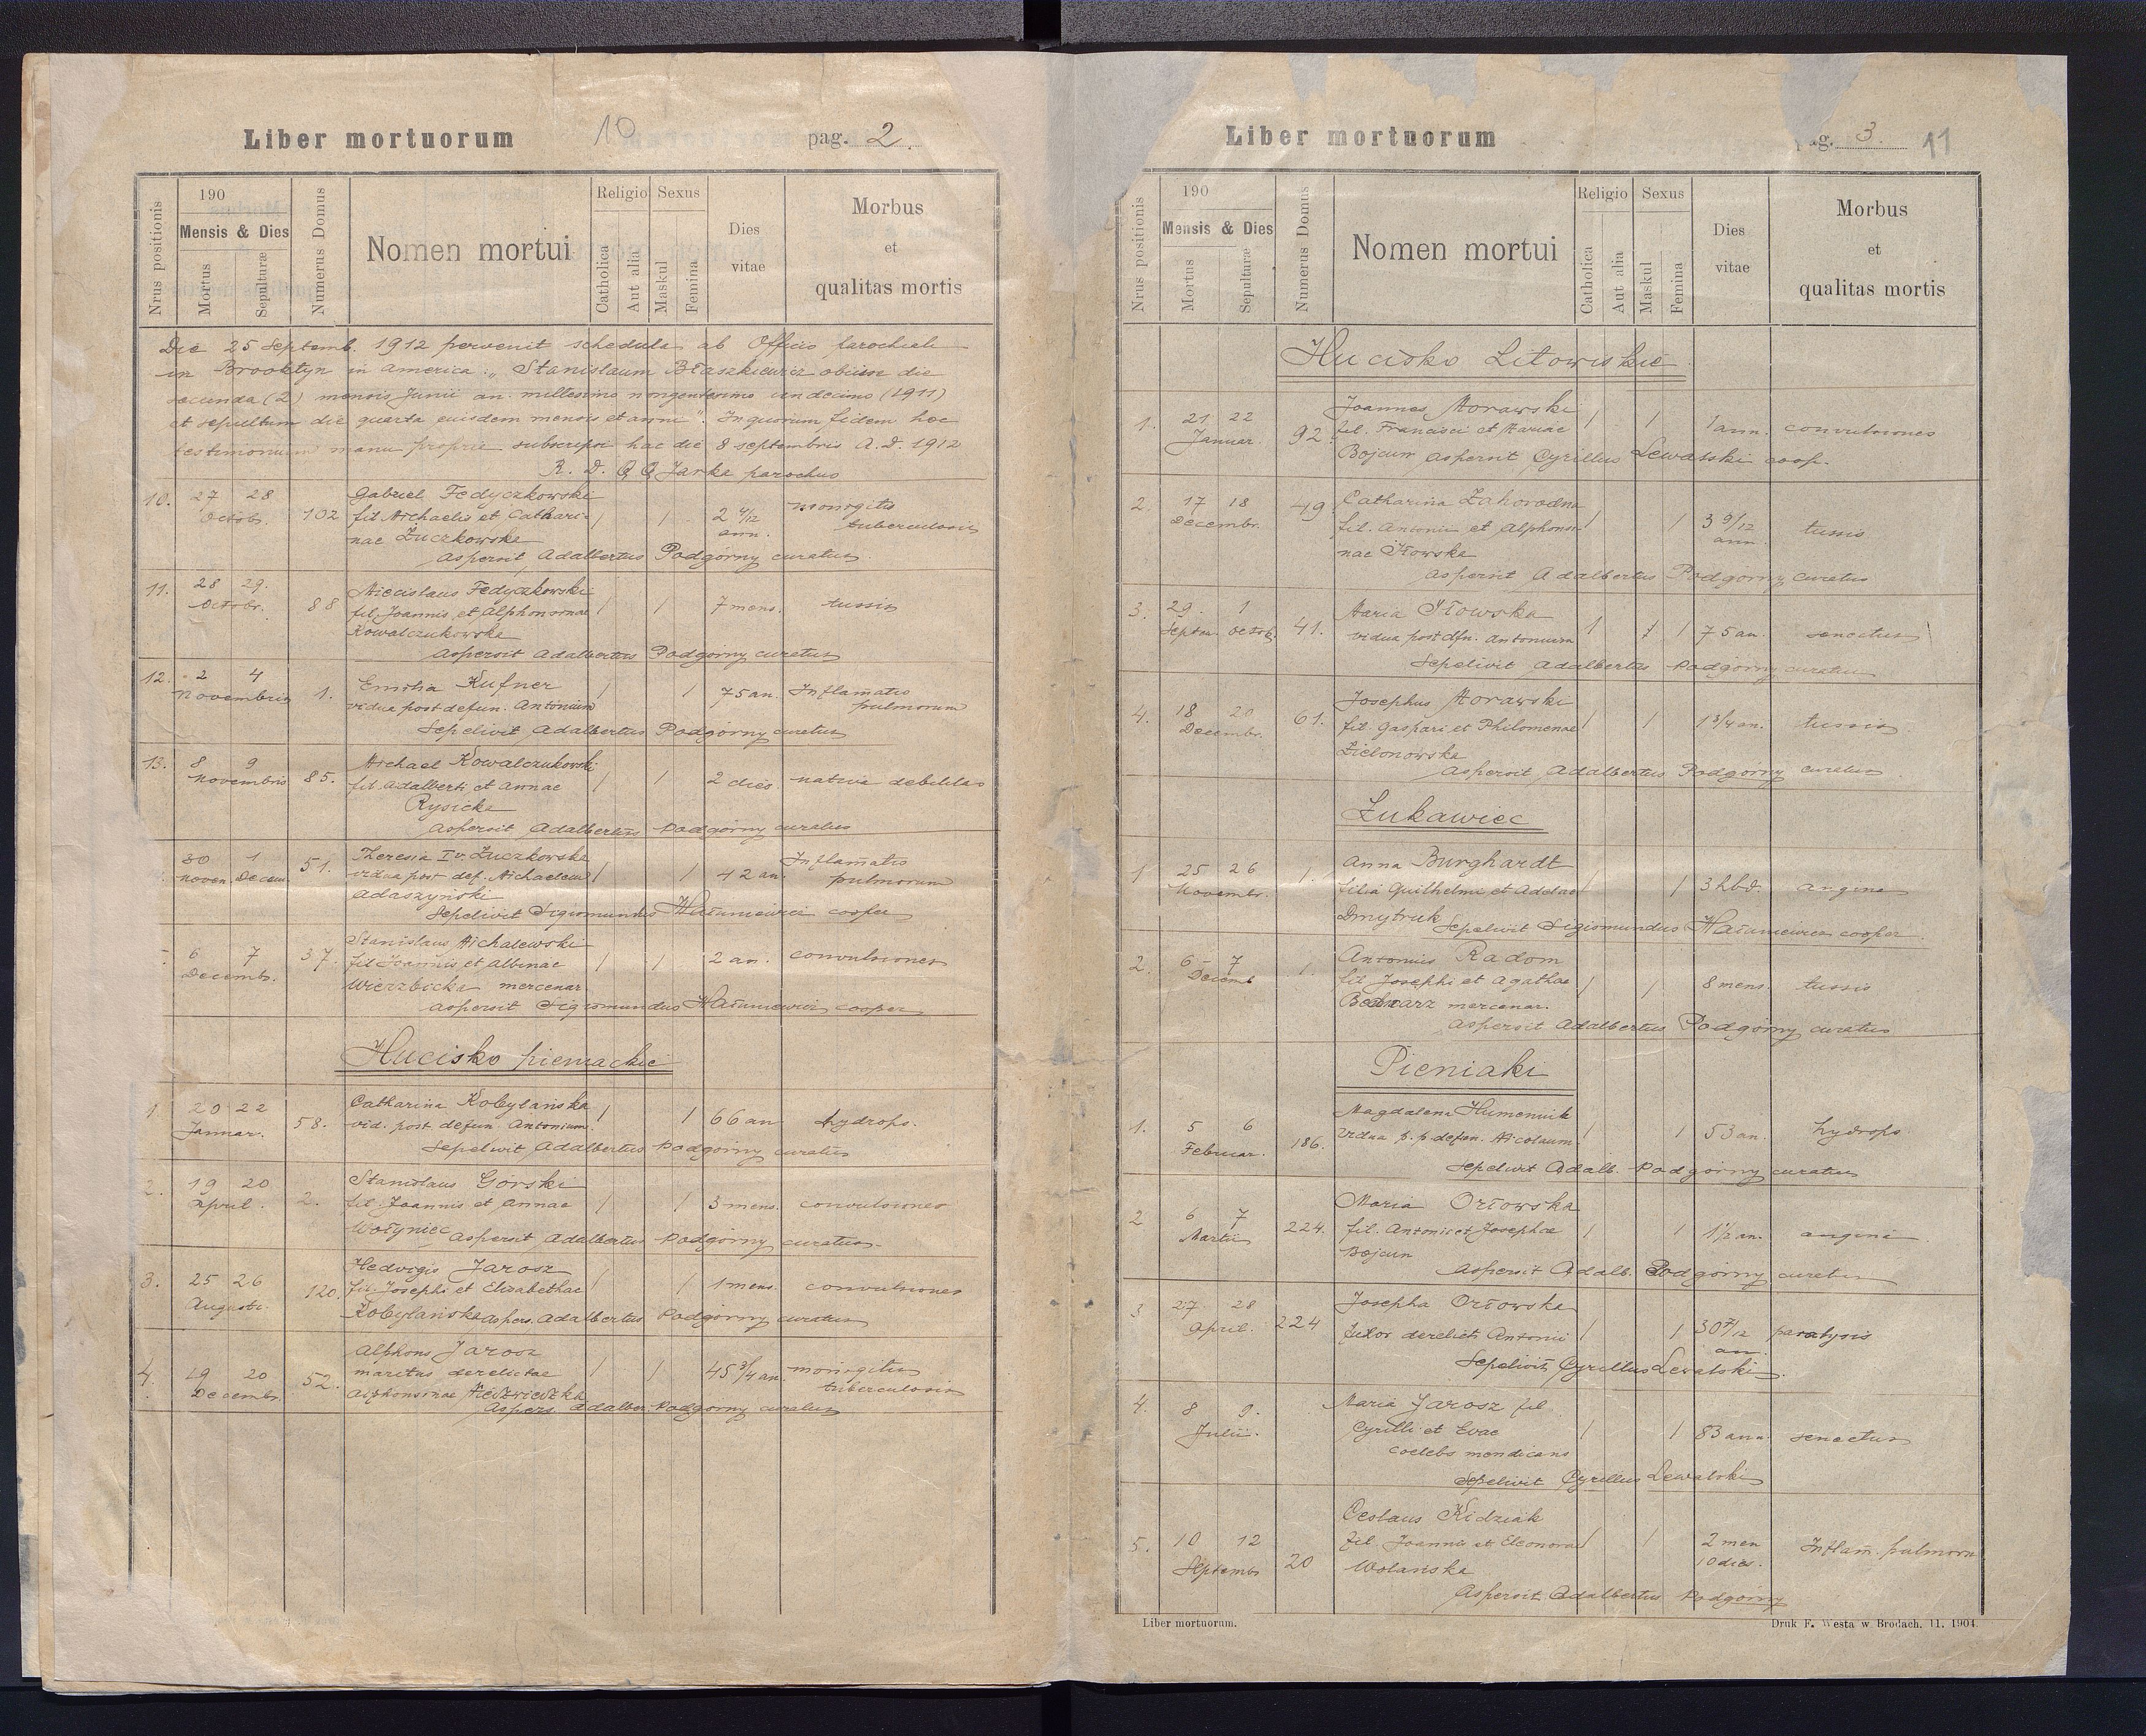 Liber mortuorum 10 pag. 2.
Nrus positionis
190
Mensis & Dies
Mortus
Sepulturæ
Numerus Domus
Nomen mortui
Religio
Catholica
Aut alia
Sexus
Maskul
Femina
Dies
vitae
Morbus
et
qualitas mortis
Die 25 Septemb. 1912 pervenit schedula ab Officio parochiali
in Brooklyn in America: „Stanislaum Błaszkiewicz obiisse die
secunda (2) mensis Junii an. millesimo nongentesimo undecimo (1911)
et sepultum die quarta eiusdem mensis et anni". In quorum fidem hoc
testimonium manu propria subscripsi hac die 8 septembris A.D. 1912
R. D. Jarka parochus
10. 27 28 Gabriel Fedyczkowski
Octob. 102 fil Michaelis et Cathari- 1 1 2 4/12 ann. meningitis tuberculosis
nae Żuczkowska
aspersit Adalbertus Podgórny curatus.
11. 28 29. Miecislaus Fedyczkowski
Octobr. 88 fil. Joannis et Alphonsinae 1 1 7 mens. tussis
Kowalczukowska
aspersit Adalbertus Podgórny curatus
12. 2 4 Emilia Kufner
Novembris 1. vidua post defun. Antonium 1 1 75 an. Inflamatio pulmorum
Sepelivit Adalbertus Podgórny curatus
13. 8 9 Michael Kowalczukowski
Novembris 85. fil. Adalberti et Annae 1 1 2 dies nativa debilitas
Rysicka
aspersit Adalbertus Podgórny curatus
30 1 51. Theresia I v. Żuczkowska
Noven. Decem. vidua post def. Michaelem 1 1 42 an. Inflamatio pulmorum
Adaszyński
Sepelivit Sigismundus Hałuniewicz cooper
6 7 37. Stanislaus Michalewski
Decembr. fil Joannis et Albinae 1 1 2 an. convulsiones
Wierzbicka mercenar.
aspersit Sigismundus Hałuniewicz cooper
Hucisko pieniackie
1 20 22 Catharina Kobylańska
Januar. 58. vid. post defun. Antonium. 1 1 66 an hydrops.
Sepelivit Adalbertus Podgórny curatus
2. 19 20 Stanislaus Górski
April. 2. fil. Joannis et Annae 1 1 3 mens. convulsiones
Wołyniec aspersit Adalbertus Podgórny curatus.
3. 25 26 Hedvigis Jarosz
Augusti. 120. fil. Josephi et Elisabethae 1 1 1 mens. convulsiones
Kobylańska aspers. Adalbertus Podgórny curatus
Alphons Jarosz
4. 19 20 52. maritus derelictae 1 1 45 3/4 an. meningitis tuberculosis
Decembr. Alphonsinae Niedzwiedzka
Aspers. Adalber. Podgórny curatus
Liber mortuorum pag. 3. 11
Nrus positionis
190
Mensis & Dies
Mortus
Sepulturæ
Numerus Domus
Nomen mortui
Religio
Catholica
Aut alia
Sexus
Maskul
Femina
Dies
vitae
Morbus
et
qualitas mortis
Hucisko Litowiskie
1. 21 22 Joannes Morawski
Januar. 92. fil. Francisci et Mariae 1 1 1 ann. convulsiones
Bojcun aspersit Cyrillus Lewalski coop.
2. 17 18 49 Catharina Zahorodna
Decembr. fil. Antonii et Alphonsi- 1 1 3 9/12 ann. tussis
nae Iłowska
aspersit Adalbertus Podgórny curatus
3. 29. 1 Maria Iłowska
Septem. Octob. 41. vidua post dfn. Antonium 1 1 75 an. senectus
Sepelivit Adalbertus Podgórny curatus
4. 18 20 61. Josephus Morawski
Decembr. fil. Gaspari et Philomenae 1 1 1 3/4 an. tussis
Zielonowska
aspersit Adalbertus Podgórny curatus
Łukawiec
1 25 26 1. Anna Burghardt
Novembr. filia Guilhelmi et Adelae 1 1 3 hbd. angina
Dmytruk Sepelivit Sigismundus Hałuniewicz cooper.
2. 6 - 7 1. Antonius Radom
Decemb fil Josephi et Agathae 1 1 8 mens. tussis
Bednarz mercenar.
aspersit Adalbertus Podgórny curatus
Pieniaki
Magdalena Humeniuk
1. 5 6 186. vidua p. p. defun. Nicolaum 1 1 53 an. hydrops
Februar.
Sepelivit Adalb. Podgórny curatus
2. 6 7 224. Maria Orłowska
Martii fil. Antonii et Josephae 1 1 1 1/2 an. angina
Bojcun
Aspersit Adalb. Podgórny curatus
3 27 28 Josepha Orłowska
April. 224 Uxor derelicti Antonii 1 1 30 7/12 an. paralysis
Sepelivit Cyrillus Lewalski.
4. 8 9. Maria Jarosz fil
Julii. Cyrilli et Evae 1 1 83 ann. senectus
coelebs mendicans
Sepelivit Cyrillus Lewalski
Ceslaus Kidziak
5. 10 12 fil. Joannis et Eleonorae 1 1 2 men 10 dies. Inflam. pulmorum
Septembr 20 Wolańska
Aspersit Adalbertus Podgórny
Liber mortuorum. Druk F. Westa w Brodach, 11. 1904